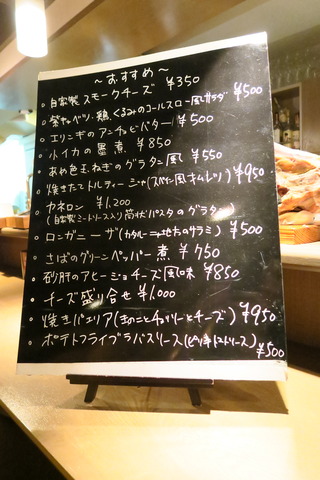 ～おすすめ～
・自家製スモークチーズ ¥350
・紫キャベツ、鶏、くるみのコールスロー風サラダ ¥500
・エリンギのアンチョビバター ¥500
・小イカの墨煮 ¥850
・あめ色玉ねぎのグラタン風 ¥550
・焼きたてトルティージャ(スペイン風オムレツ) ¥950
・カネロン ¥1,200
(自家製ミートソース入り筒状パスタのグラタン)
・ロンガニーザ(カタルーニャ地方のサラミ) ¥500
・さばのグリーンペッパー煮 ¥750
・砂肝のアヒージョチーズ風味 ¥850
・チーズ盛り合せ ¥1,000
・焼きパエリア(きのことチョリソーとチーズ) ¥950
・ポテトフライブラバスソース(ピリ辛トマトソース) ¥500